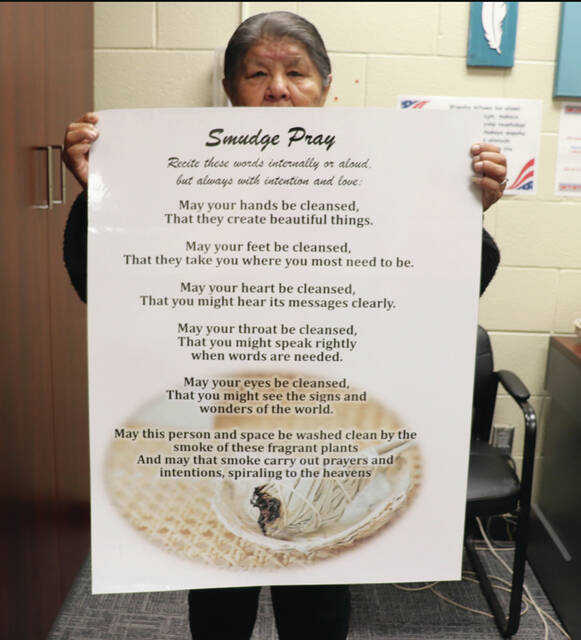 Smudge Pray
Recite these words internally or aloud,
but always with intention and love:
May your hands be cleansed,
That they create beautiful things.
May your feet be cleansed,
That they take you where you most need to be.
May your heart be cleansed,
That you might hear its messages clearly.
May your throat be cleansed,
That you might speak rightly
when words are needed.
May your eyes be cleansed,
That you might see the signs and
wonders of the world.
May this person and space be washed clean by the
smoke of these fragrant plants
And may that smoke carry out prayers and
intentions, spiraling to the heavens